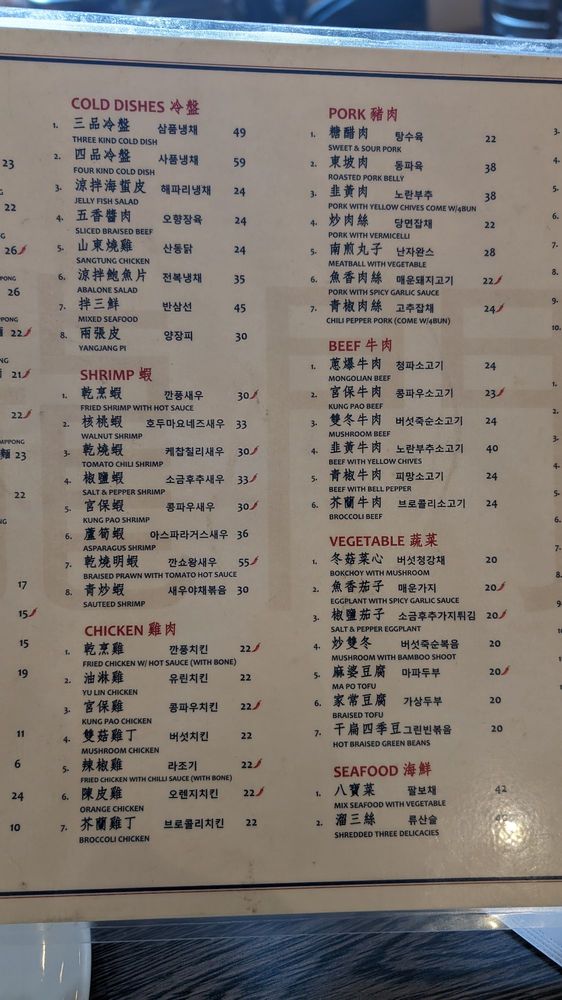 23
22
26
PONG
26
麵 22
NG
21
22
MPPONG
麵 23
22
17
15
15
19
11
6
24
10
COLD DISHES 冷盤
1. 三品冷盤 삼품냉채 49
THREE KIND COLD DISH
2. 四品冷盤 사품냉채 59
FOUR KIND COLD DISH
3. 涼拌海蜇皮 해파리냉채 24
JELLY FISH SALAD
4. 五香醬肉 오향장육 24
SLICED BRAISED BEEF
5. 山東燒雞 산동닭 24
SANGTUNG CHICKEN
6. 涼拌鮑魚片 전복냉채 35
ABALONE SALAD
7. 拌三鮮 반삼선 45
MIXED SEAFOOD
8. 兩張皮 양장피 30
YANGJANG PI
SHRIMP 蝦
1. 乾烹蝦 깐풍새우 30
FRIED SHRIMP WITH HOT SAUCE
2. 核桃蝦 호두마요네즈새우 33
WALNUT SHRIMP
3. 乾燒蝦 케찹칠리새우 30
TOMATO CHILI SHRIMP
4. 椒鹽蝦 소금후추새우 33
SALT & PEPPER SHRIMP
5. 宮保蝦 콩파우새우 30
KUNG PAO SHRIMP
6. 蘆筍蝦 아스파라거스새우 36
ASPARAGUS SHRIMP
7. 乾燒明蝦 깐쇼왕새우 55
BRAISED PRAWN WITH TOMATO HOT SAUCE
8. 青炒蝦 새우야채볶음 30
SAUTEED SHRIMP
CHICKEN 雞肉
1. 乾烹雞 깐풍치킨 22
FRIED CHICKEN W/ HOT SAUCE (WITH BONE)
2. 油淋雞 유린치킨 22
YU LIN CHICKEN
3. 宮保雞 콩파우치킨 22
KUNG PAO CHICKEN
4. 雙菇雞丁 버섯치킨 22
MUSHROOM CHICKEN
5. 辣椒雞 라조기 22
FRIED CHICKEN WITH CHILLI SAUCE (WITH BONE)
6. 陳皮雞 오렌지치킨 22
ORANGE CHICKEN
7. 芥蘭雞丁 브로콜리치킨 22
BROCCOLI CHICKEN
PORK 豬肉
1. 糖醋肉 탕수육 22
SWEET & SOUR PORK
2. 東坡肉 동파육 38
ROASTED PORK BELLY
3. 韭黃肉 노란부추 38
PORK WITH YELLOW CHIVES COME W/4BUN
4. 炒肉絲 당면잡채 22
PORK WITH VERMICELLI
5. 南煎丸子 난자완스 28
MEATBALL WITH VEGETABLE
6. 魚香肉絲 매운돼지고기 22
PORK WITH SPICY GARLIC SAUCE
7. 青椒肉絲 고추잡채 24
CHILI PEPPER PORK (COME W/4BUN)
BEEF 牛肉
1. 蔥爆牛肉 청파소고기 24
MONGOLIAN BEEF
2. 宮保牛肉 콩파우소고기 23
KUNG PAO BEEF
3. 雙冬牛肉 버섯죽순소고기 24
MUSHROOM BEEF
4. 韭黃牛肉 노란부추소고기 40
BEEF WITH YELLOW CHIVES
5. 青椒牛肉 피망소고기 24
BEEF WITH BELL PEPPER
6. 芥蘭牛肉 브로콜리소고기 24
BROCCOLI BEEF
VEGETABLE 蔬菜
1. 冬菇菜心 버섯청강채 20
BOKCHOY WITH MUSHROOM
2. 魚香茄子 매운가지 20
EGGPLANT WITH SPICY GARLIC SAUCE
3. 椒鹽茄子 소금후추가지튀김 20
SALT & PEPPER EGGPLANT
4. 炒雙冬 버섯죽순볶음 20
MUSHROOM WITH BAMBOO SHOOT
5. 麻婆豆腐 마파두부 20
MA PO TOFU
6. 家常豆腐 가상두부 20
BRAISED TOFU
7. 干扁四季豆 그린빈볶음 20
HOT BRAISED GREEN BEANS
SEAFOOD 海鮮
1. 八寶菜 팔보채 42
MIX SEAFOOD WITH VEGETABLE
2. 溜三絲 류산슬
SHREDDED THREE DELICACIES